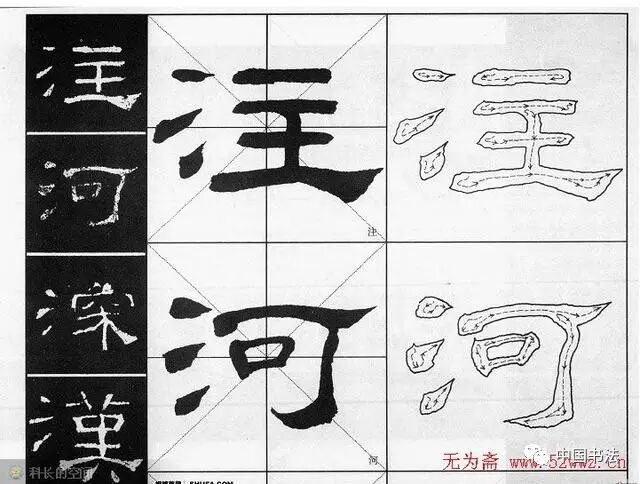 注
河
深
漢
注
注
注
河
河
河
无为斋 www.52wwz.cn
中国书法
科长的空间
SHUFA.COM